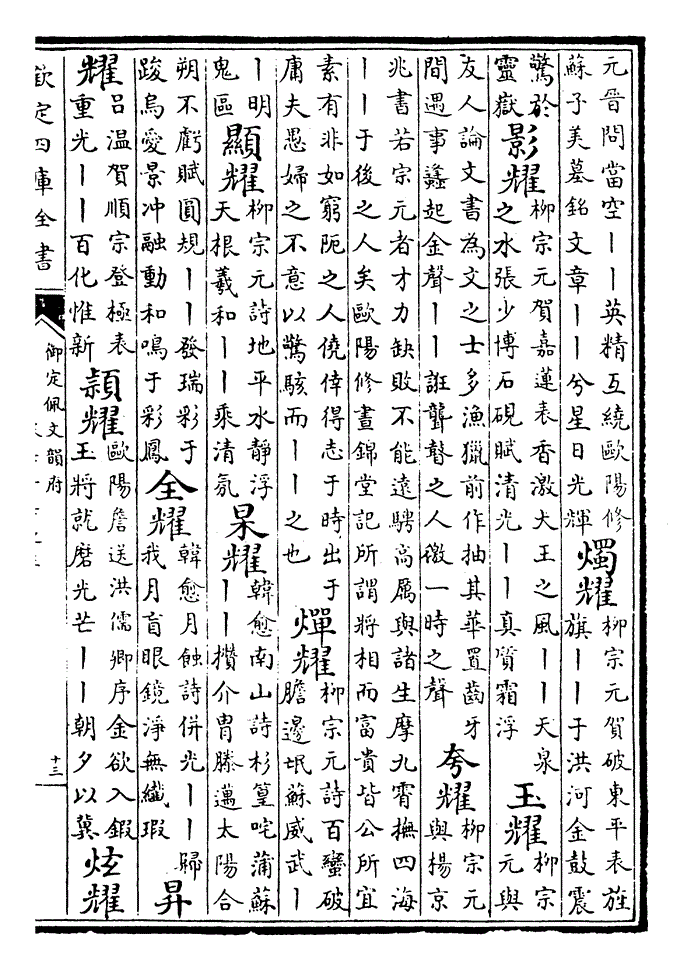 元晉問當空丨丨英精互繞歐陽修
蘇子美墓銘文章丨丨兮星日光輝
燭耀
柳宗元賀破東平表旌
旗丨丨于洪河金鼓震
驚於
靈嶽
影耀
柳宗元賀嘉蓮表香激大王之風丨丨天泉
之水張少博石硯賦清光丨丨真質霜浮
玉耀
柳宗
元與
友人論文書為文之士多漁獵前作抽其華置齒牙
間遇事蠭起金聲丨丨誑聾瞽之人徼一時之聲
夸耀
柳宗元
與楊京
兆書若宗元者才力缺敗不能遠騁高厲與諸生摩九霄撫四海
丨丨于後之人矣歐陽修晝錦堂記所謂將相而富貴皆公所宜
素有非如窮阨之人僥倖得志于時出于
庸夫愚婦之不意以驚駭而丨丨之也
燀耀
柳宗元詩百蠻破
膽邊氓蘇威武丨
丨明
鬼區
顯耀
柳宗元詩地平水靜浮
天根羲和丨丨乘清氛
杲耀
韓愈南山詩杉篁咤蒲蘇
丨丨攢介冑滕邁太陽合
朔不虧賦圓規丨丨發瑞彩于
踆烏愛景冲融動和鳴于彩鳳
全耀
韓愈月蝕詩併光丨丨歸
我月盲眼鏡淨無纖瑕
昇
耀
呂温賀順宗登極表
重光丨丨百化惟新
頴耀
歐陽詹送洪儒卿序金欲入鍜
玉將就磨光芒丨丨朝夕以冀
炫耀
欽定四庫全書
御定佩文韻府
十三